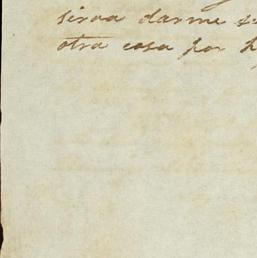 sirva darme su
otra cosa por